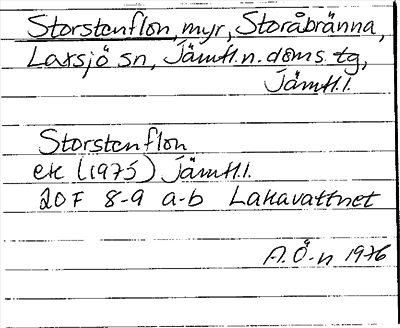 Storstenflon, myr, Storåbränna,
Laxsjö sn, Jämtl. n. doms. tg,
Jämtl. l.
Storstenflon
ek (1975) Jämtl. l.
20 F 8-9 a-b Lakavattnet
A. Ö-n 1976